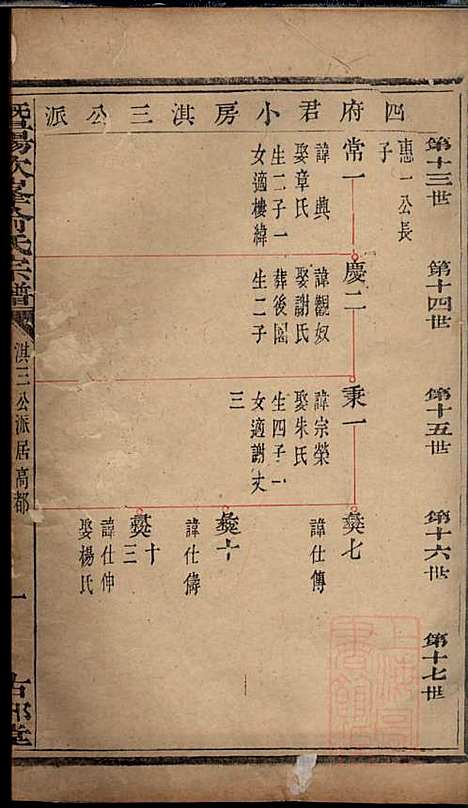 四府君小房淇三公派
第十三世
第十四世
第十五世
第十六世
第十七世
惠一公長
子
常一
諱典
娶章氏
生二子一
女適樓緯
慶二
諱觀奴
娶謝氏
葬後園
生二子
秉一
諱宗榮
娶朱氏
生四子一
女適謝丈
三
彛七
諱仕傳
彛十
諱仕儔
彛十
三
諱仕伸
娶楊氏
暨陽次峯俞氏宗譜
淇三公派居高都
一